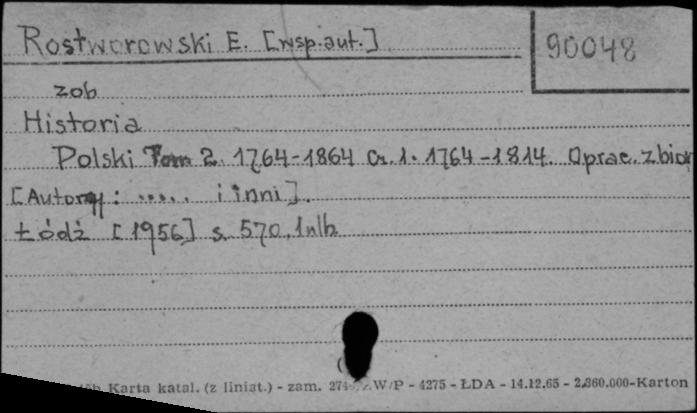 Rostworowski E. [wsp.aut.]
90048
zob
Historia
Polski Tom 2. 1764-1864 Cz. 1. 1764-1814. Oprac. zbior
[Autorzy: ..... i inni].
Łódź [1956] s. 570, 1 nlb
Karta katal. (z liniat.) - zam. W/P - 4275 - ŁDA - 14.12.65 - 2.860.000-Karton